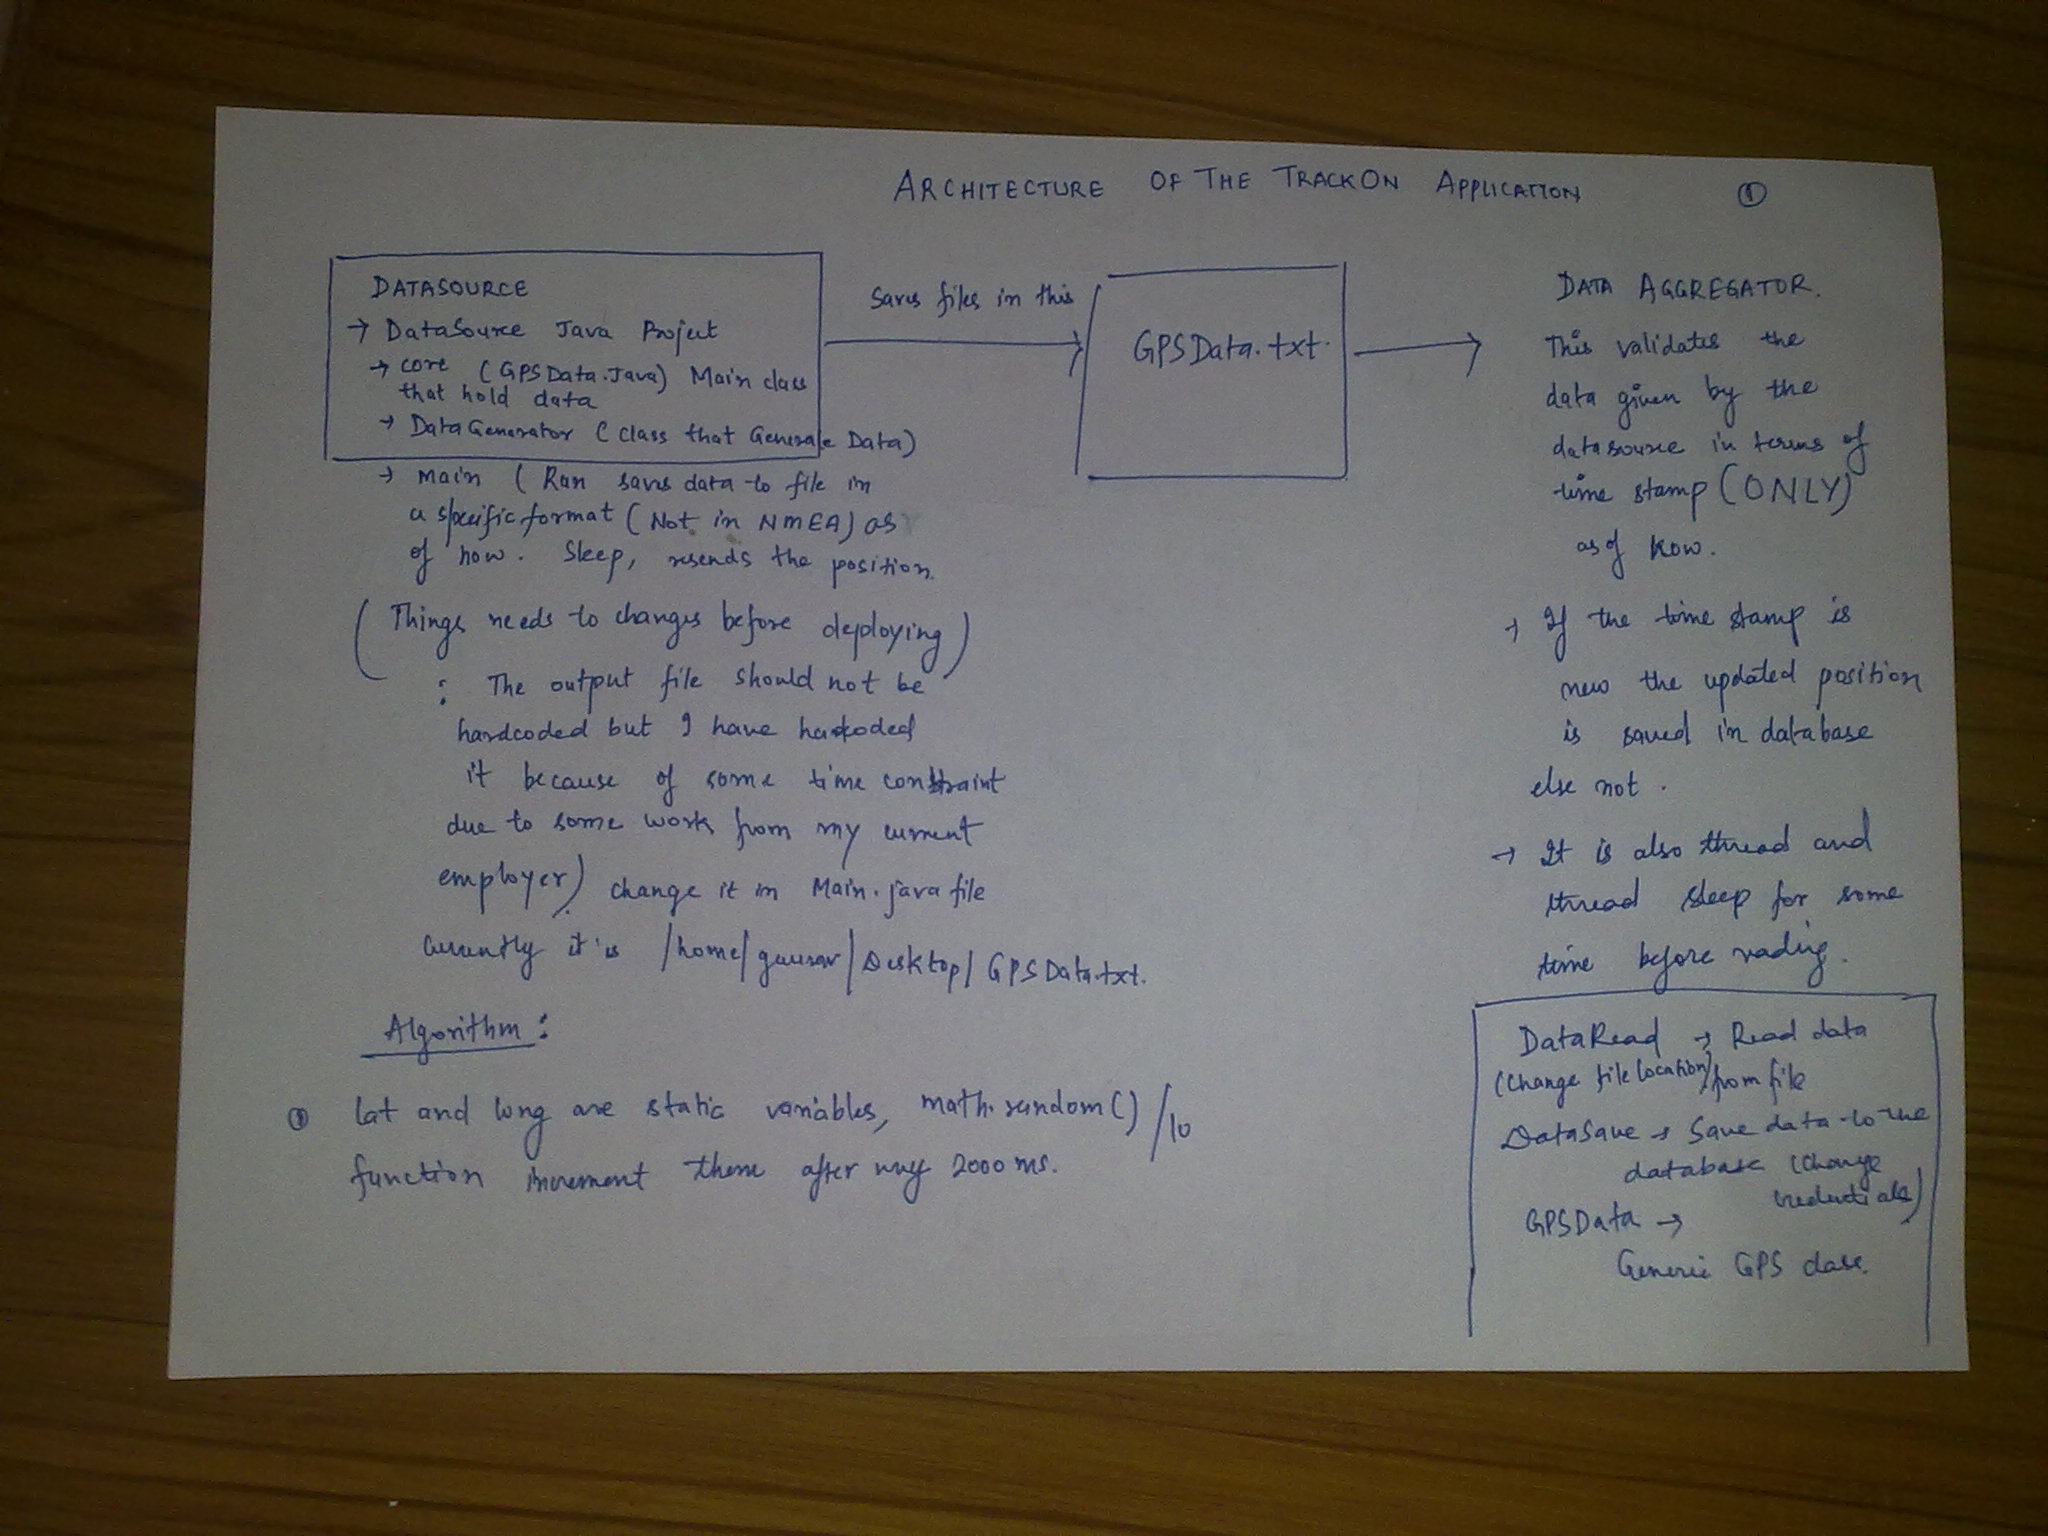 ARCHITECTURE OF THE TRACKON APPLICATION ①
DATASOURCE
→ DataSource Java Project
→ core (GPSData.Java) Main class
that hold data
→ DataGenerator (class that Generate Data)
→ main (Run saves data to file in
a specific format (Not in NMEA) as
of now. Sleep, resends the position.
(Things needs to changes before deploying)
: The output file should not be
hardcoded but I have hardcoded
it because of some time constraint
due to some work from my current
employer) change it in Main.java file
Currently it is /home/gaurav/Desktop/GPSData.txt.
Algorithm:
① lat and long are static variables, math.random()/10
function increment them after every 2000 ms.
Saves files in this
GPSData.txt.
DATA AGGREGATOR.
This validates the
data given by the
datasource in terms of
time stamp (ONLY)
as of now.
→ If the time stamp is
new the updated position
is saved in database
else not.
→ It is also thread and
thread sleep for some
time before reading.
DataRead → Read data
(Change file location) from file
DataSave → Save data to the
database (Change
credentials)
GPSData →
Generic GPS class.